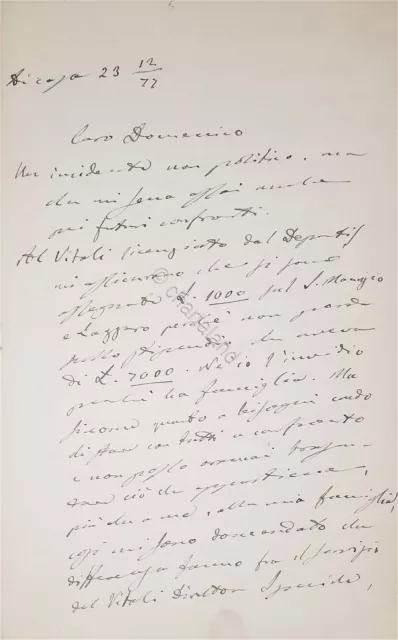 Di casa 23 12/77
Caro Domenico
Un incidente non politico, ma
che mi serva assai anche
pei futuri confronti.
Al Vitali licenziato dal Deposit
mi assicurano che si sono
assegnate £. 1000 sul S. Maurizio
e Lazzaro perché non perda
nello stipendio che aveva
di £. 7000. Nè io l'invidio
perché ha famiglia. Ma
siccome quanto a bisogni credo
di star con tutti a confronto
e non posso oramai
ciò che appartiene,
più che a me, alla mia famiglia,
così mi sono domandato che
differenza fanno fra il servizio
del Vitali Direttore Speciale,
© chartaland